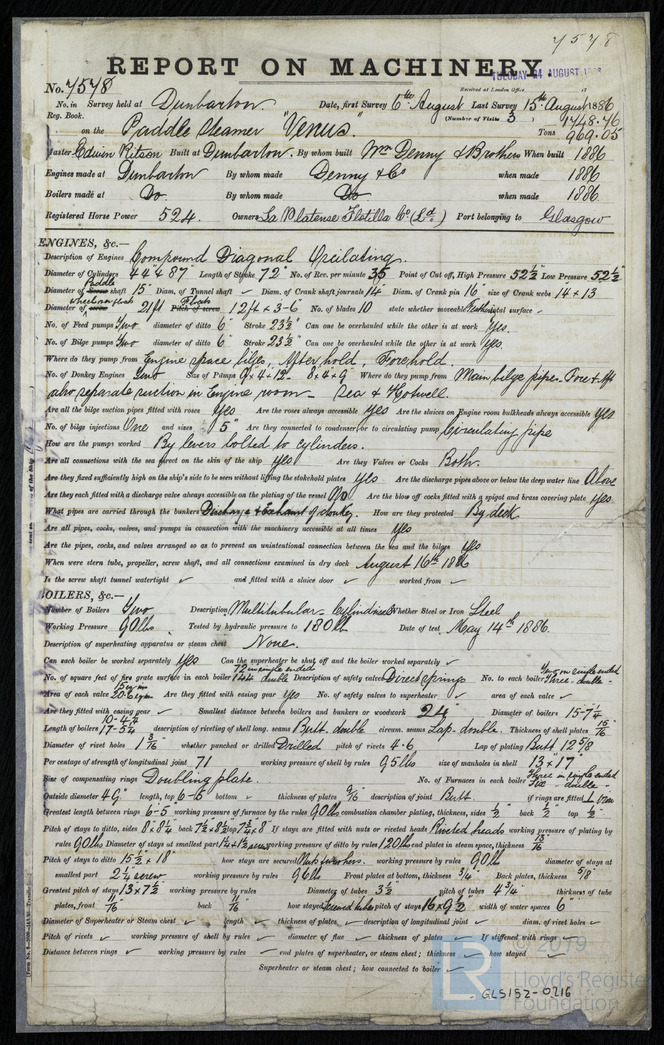 7578
REPORT ON MACHINERY.
No. 7578
TUESDAY 24 AUGUST 188
Received at London Office
No. in Survey held at Dumbarton Date, first Survey 6th August Last Survey 15th August 1886
Reg. Book. (Number of Visits 3)
on the Paddle Steamer "Venus" Tons 1748.76 969.05
Master Edwin Ritson Built at Dumbarton. By whom built Wm Denny & Brothers When built 1886
Engines made at Dumbarton By whom made Denny & Co when made 1886
Boilers made at Do. By whom made Do when made 1886
Registered Horse Power 524. Owners La Platense Flotilla Co (Ld.) Port belonging to Glasgow
ENGINES, &c.—
Description of Engines Compound Diagonal Oscilating.
Diameter of Cylinders 44" & 87 Length of Stroke 72" No. of Rev. per minute 35 Point of Cut off, High Pressure 52½" Low Pressure 52½"
Diameter of Screw Paddle shaft 15" Diam. of Tunnel shaft ✓ Diam. of Crank shaft journals 14" Diam. of Crank pin 16" size of Crank webs 14 × 13
Diameter of screw wheel on floats 21ft Pitch of screw Floats 12ft × 3-6" No. of blades 10 state whether moveable Feathering total surface ✓
No. of Feed pumps Two diameter of ditto 6" Stroke 23½" Can one be overhauled while the other is at work Yes.
No. of Bilge pumps Two diameter of ditto 6" Stroke 23½" Can one be overhauled while the other is at work Yes.
Where do they pump from Engine space bilges, After hold, Forehold.
No. of Donkey Engines Two Size of Pumps 9×4×12" 8×4×9" Where do they pump from Main bilge pipes Fore & Aft
also separate suction in Engine room — Sea & Hotwell.
Are all the bilge suction pipes fitted with roses Yes Are the roses always accessible Yes Are the sluices on Engine room bulkheads always accessible Yes
No. of bilge injections One and sizes 5" Are they connected to condenser, or to circulating pump Circulating pipe
How are the pumps worked By levers bolted to cylinders.
Are all connections with the sea direct on the skin of the ship Yes Are they Valves or Cocks Both.
Are they fixed sufficiently high on the ship's side to be seen without lifting the stokehold plates Yes Are the discharge pipes above or below the deep water line Above
Are they each fitted with a discharge valve always accessible on the plating of the vessel No Are the blow off cocks fitted with a spigot and brass covering plate Yes
What pipes are carried through the bunkers Discharge & Exhaust of donkey. How are they protected By deck
Are all pipes, cocks, valves, and pumps in connection with the machinery accessible at all times Yes
Are the pipes, cocks, and valves arranged so as to prevent an unintentional connection between the sea and the bilges Yes
When were stern tube, propeller, screw shaft, and all connections examined in dry dock August 16th 1886
Is the screw shaft tunnel watertight ✓ and fitted with a sluice door ✓ worked from ✓
BOILERS, &c.—
Number of Boilers Two Description Multitubular - Cylindrical Whether Steel or Iron Steel
Working Pressure 90lbs. Tested by hydraulic pressure to 180lb Date of test May 14th 1886.
Description of superheating apparatus or steam chest None.
Can each boiler be worked separately Yes Can the superheater be shut off and the boiler worked separately ✓
No. of square feet of fire grate surface in each boiler 72 in single ended 144 double Description of safety valves Direct springs No. to each boiler Two on single ended Three - double -
Area of each valve Are they fitted with easing gear Yes No. of safety valves to superheater ✓ area of each valve ✓
Are they fitted with easing gear ✓ Smallest distance between boilers and bunkers or woodwork 24" Diameter of boilers 15-7¼
Length of boilers 10-4½ 17-5¼ description of riveting of shell long. seams Butt. double circum. seams Lap. double. Thickness of shell plates 15/16
Diameter of rivet holes 1 3/16 whether punched or drilled Drilled pitch of rivets 4-6 Lap of plating Butt 12⅝
Per centage of strength of longitudinal joint 71 working pressure of shell by rules 95lbs size of manholes in shell 13" × 17"
Size of compensating rings Doubling plate. No. of Furnaces in each boiler Three in single ended Six - double -
Outside diameter 49" length, top 6-5 bottom ✓ thickness of plates 9/16 description of joint Butt if rings are fitted
Greatest length between rings 6-5" working pressure of furnace by the rules 90lbs combustion chamber plating, thickness, sides ½" back ½" top ½"
Pitch of stays to ditto, sides 8×8¼ back 7½×8½ top 7¾×8" If stays are fitted with nuts or riveted heads Rivited heads working pressure of plating by
rules 90lbs Diameter of stays at smallest part working pressure of ditto by rules 120lbs end plates in steam space, thickness 13/16
Pitch of stays to ditto 15½ × 18" how stays are secured Nuts & washers. working pressure by rules 90lb diameter of stays at
smallest part 2¼ screw working pressure by rules 96lb Front plates at bottom, thickness ¾" Back plates, thickness ⅝"
Greatest pitch of stays 13×7½ working pressure by rules Diameter of tubes 3½" pitch of tubes 4¾" thickness of tube
plates, front 11/16 back 11/16 how stayed Screwed tubes pitch of stays 16×9½" width of water spaces 6"
Diameter of Superheater or Steam chest ✓ length ✓ thickness of plates ✓ description of longitudinal joint ✓ diam. of rivet holes ✓
Pitch of rivets ✓ working pressure of shell by rules ✓ diameter of flue ✓ thickness of plates ✓ If stiffened with rings ✓
Distance between rings ✓ working pressure by rules ✓ end plates of superheater, or steam chest; thickness ✓ how stayed ✓
Superheater or steam chest; how connected to boiler ✓
© 2019
LR
Lloyd's Register
Foundation
GLS152-0216